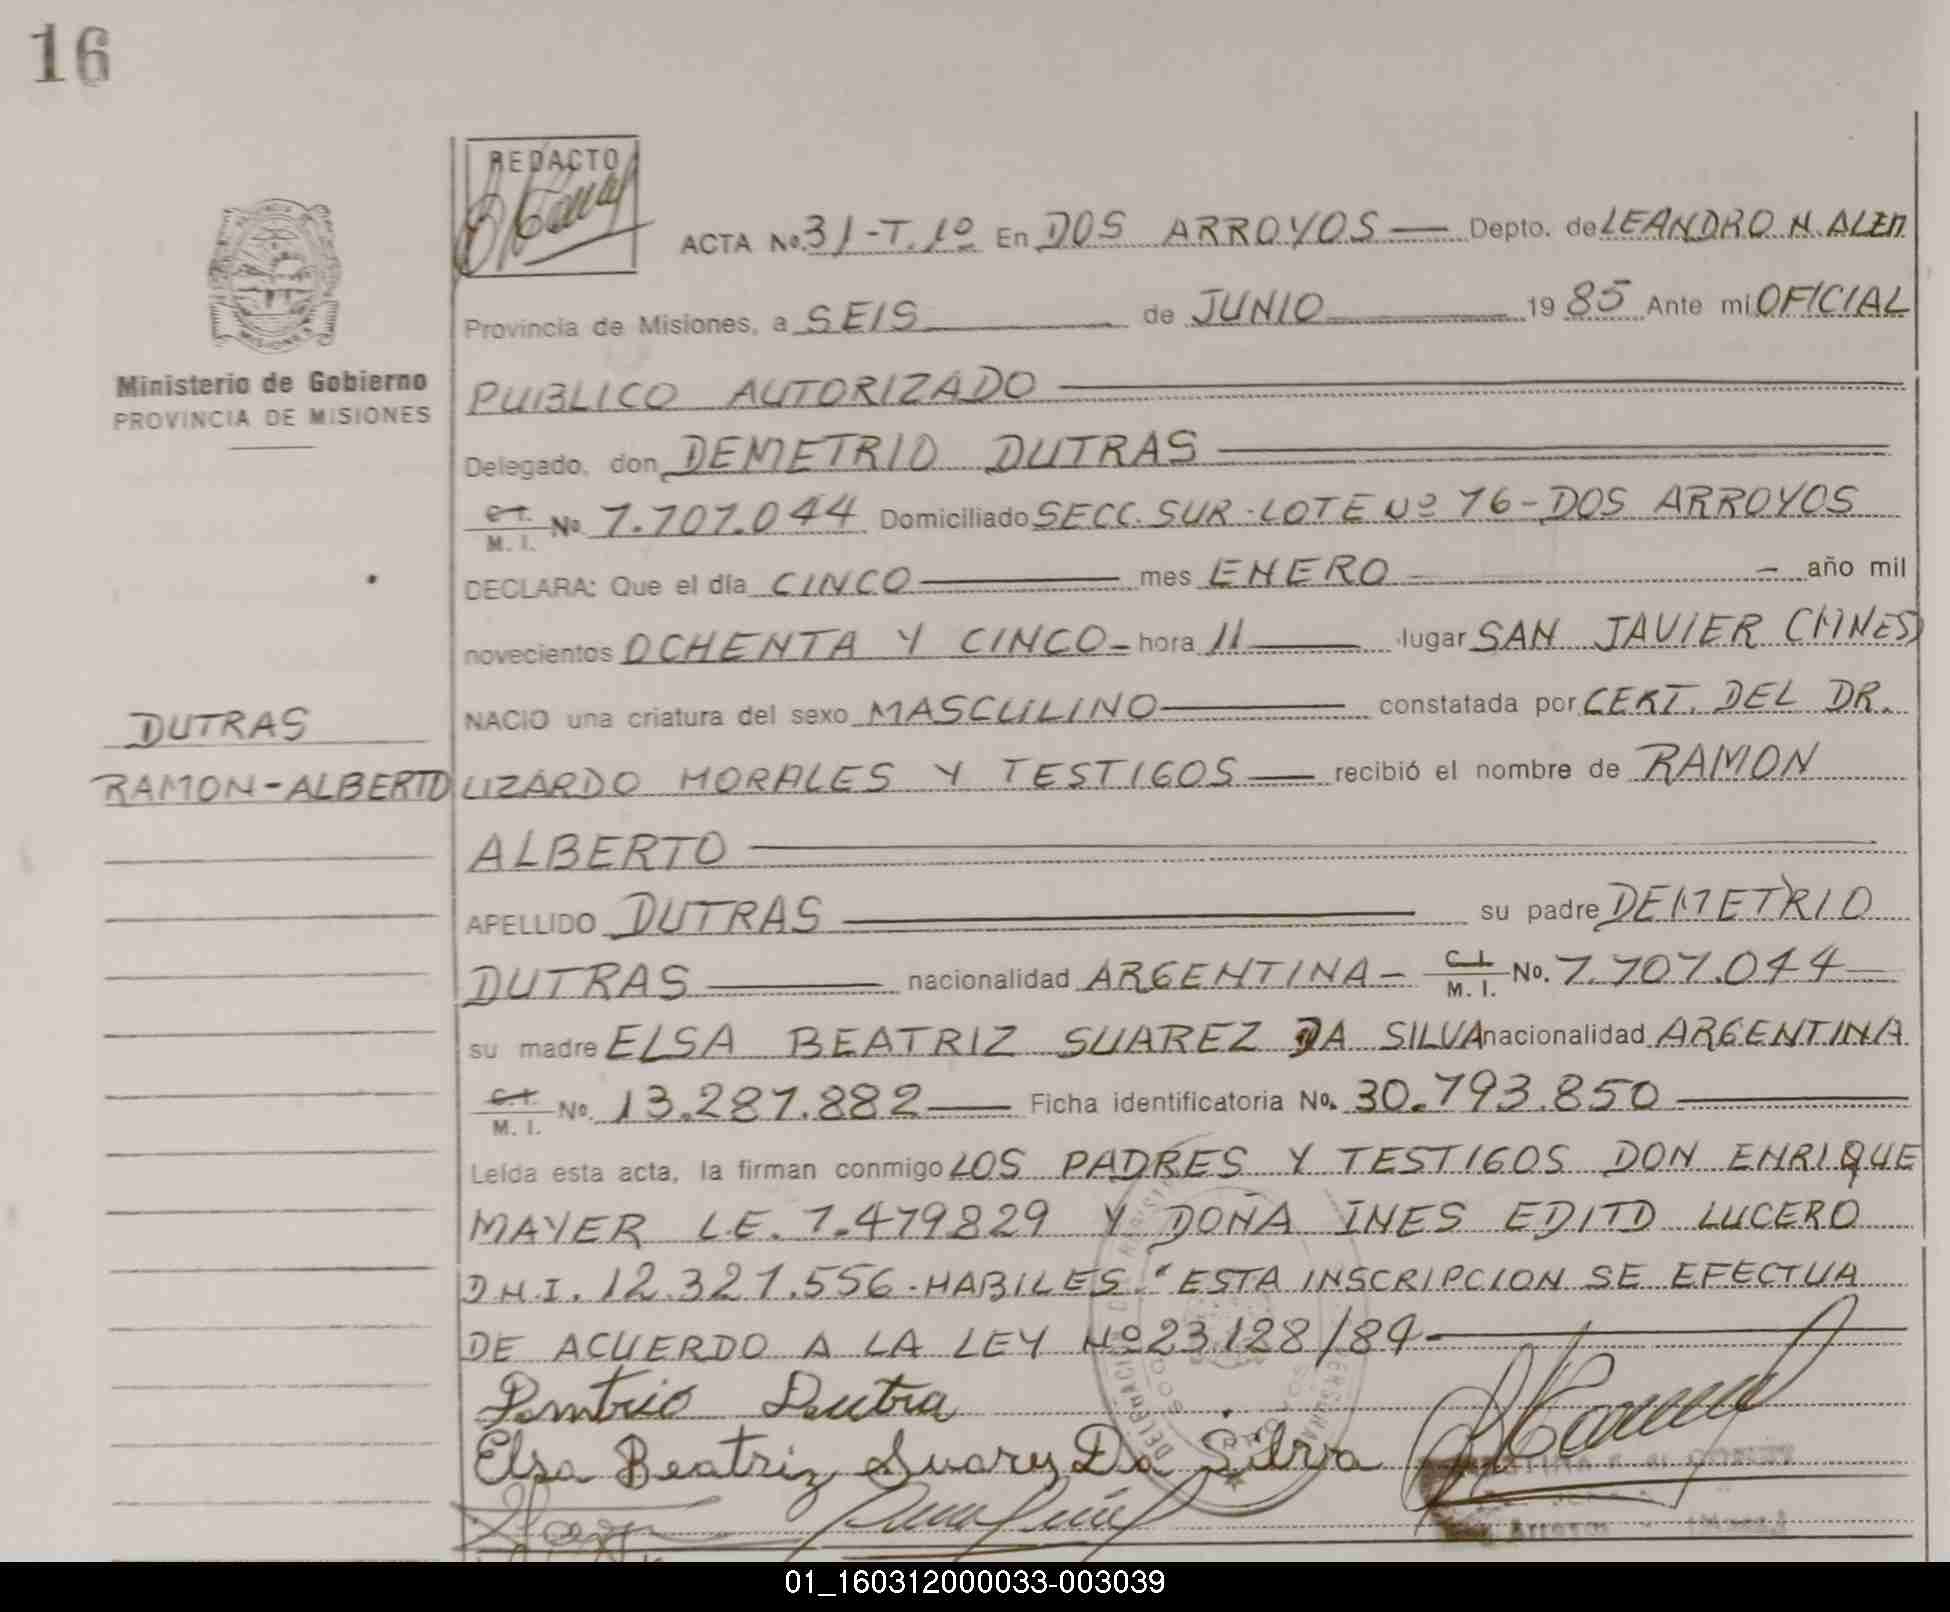 16
REDACTO
ACTA No. 31-T.1º En DOS ARROYOS — Depto. de LEANDRO N. ALEM
Provincia de Misiones, a SEIS de JUNIO 1985 Ante mi OFICIAL
Ministerio de Gobierno
PROVINCIA DE MISIONES
PUBLICO AUTORIZADO
Delegado, don DEMETRIO DUTRAS
C.I. M. I. No. 7.707.044 Domiciliado SECC. SUR - LOTE Nº 76 - DOS ARROYOS
DECLARA: Que el día CINCO mes ENERO — año mil
novecientos OCHENTA Y CINCO - hora 11 lugar SAN JAVIER (MNES)
DUTRAS
NACIO una criatura del sexo MASCULINO constatada por CERT. DEL DR.
RAMON-ALBERTO
LIZARDO MORALES Y TESTIGOS — recibió el nombre de RAMON
ALBERTO
APELLIDO DUTRAS su padre DEMETRIO
DUTRAS nacionalidad ARGENTINA - C.I. M. I. No. 7.707.044
su madre ELSA BEATRIZ SUAREZ DA SILVA nacionalidad ARGENTINA
C.I. M. I. No. 13.287.882 — Ficha identificatoria No. 30.793.850
Leída esta acta, la firman conmigo LOS PADRES Y TESTIGOS DON ENRIQUE
MAYER L.E. 7.479829 Y DOÑA INES EDITD LUCERO
D.N.I. 12.327.556 - HABILES. "ESTA INSCRIPCION SE EFECTUA
DE ACUERDO A LA LEY Nº 23.128/84-
Demtrio Dutra
Elsa Beatriz Suarez Da Silva
01_160312000033-003039